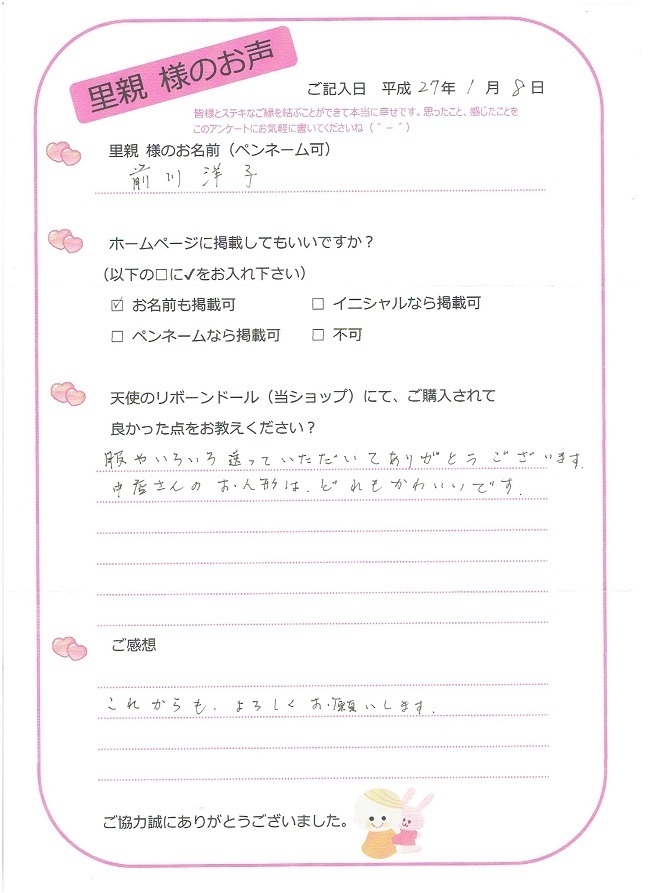 里親 様のお声
ご記入日 平成 27年 1月 8日
皆様とステキなご縁を結ぶことができて本当に幸せです。思ったこと、感じたことを
このアンケートにお気軽に書いてくださいね（＾－＾）
里親 様のお名前（ペンネーム可）
前川 洋子
ホームページに掲載してもいいですか？
（以下の□に✓をお入れ下さい）
☑ お名前も掲載可 □ イニシャルなら掲載可
□ ペンネームなら掲載可 □ 不可
天使のリボーンドール（当ショップ）にて、ご購入されて
良かった点をお教えください？
服やいろいろ送っていただいてありがとうございます.
さんのお人形は、どれもかわいいです.
ご感想
これからも、よろしくお願いします.
ご協力誠にありがとうございました。